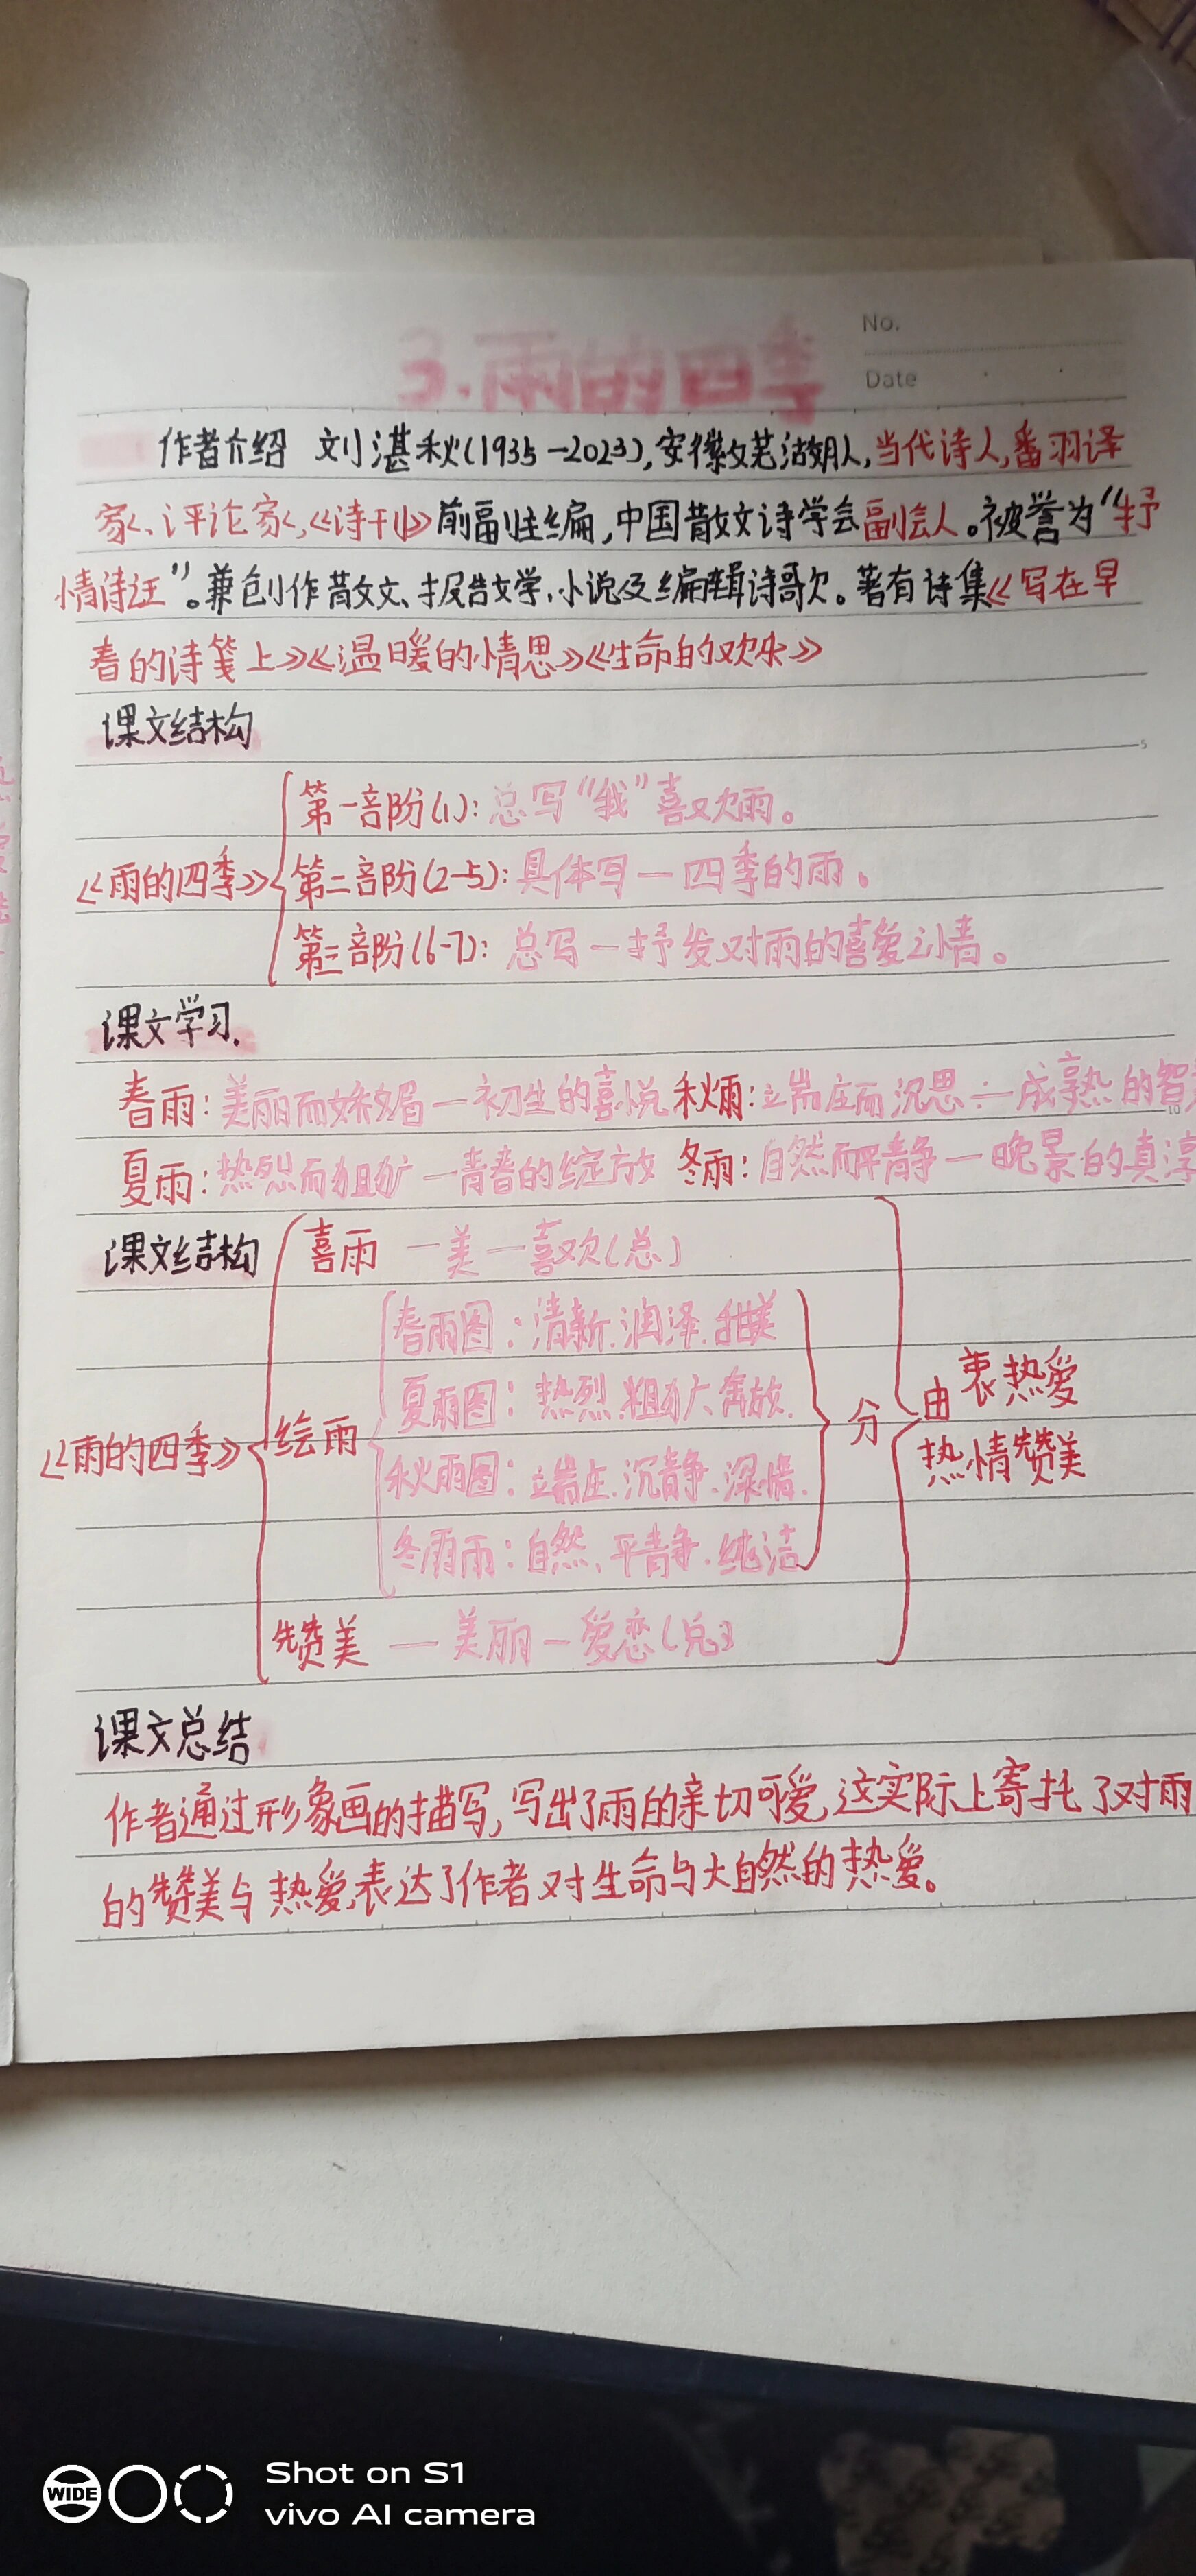 3.雨的四季
No.
Date
作者介绍 刘湛秋(1935-2023),安徽芜湖人,当代诗人,翻译
家、评论家,《诗刊》前副主编,中国散文诗学会副会人。被誉为“抒
情诗汪”。兼创作散文、报告文学,小说及编辑诗歌。著有诗集《写在早
春的诗笺上》《温暖的情思》《生命的欢乐》
课文结构
5
第一部阶(1):总写“我”喜欢雨。
《雨的四季》 第二部阶(2-5):具体写一四季的雨。
第三部阶(6-7):总写一抒发对雨的喜爱之情。
课文学习.
春雨:美丽而妩媚一初生的喜悦 秋雨:端庄而沉思一成熟的智
10
夏雨:热烈而粗犷一青春的绽放 冬雨:自然而平静一晚景的真淳
课文结构 喜雨 一美一喜欢(总)
春雨图:清新.润泽.甜美
夏雨图:热烈.粗犷.奔放.
《雨的四季》 绘雨 分 由衷热爱
热情赞美
秋雨图:端庄.沉静.深情.
冬雨雨:自然、平静.纯洁
赞美 一美丽一爱恋(总)
课文总结
作者通过形象画的描写,写出了雨的亲切可爱,这实际上寄托了对雨
的赞美与热爱,表达了作者对生命与大自然的热爱。
WIDE
Shot on S1
vivo AI camera